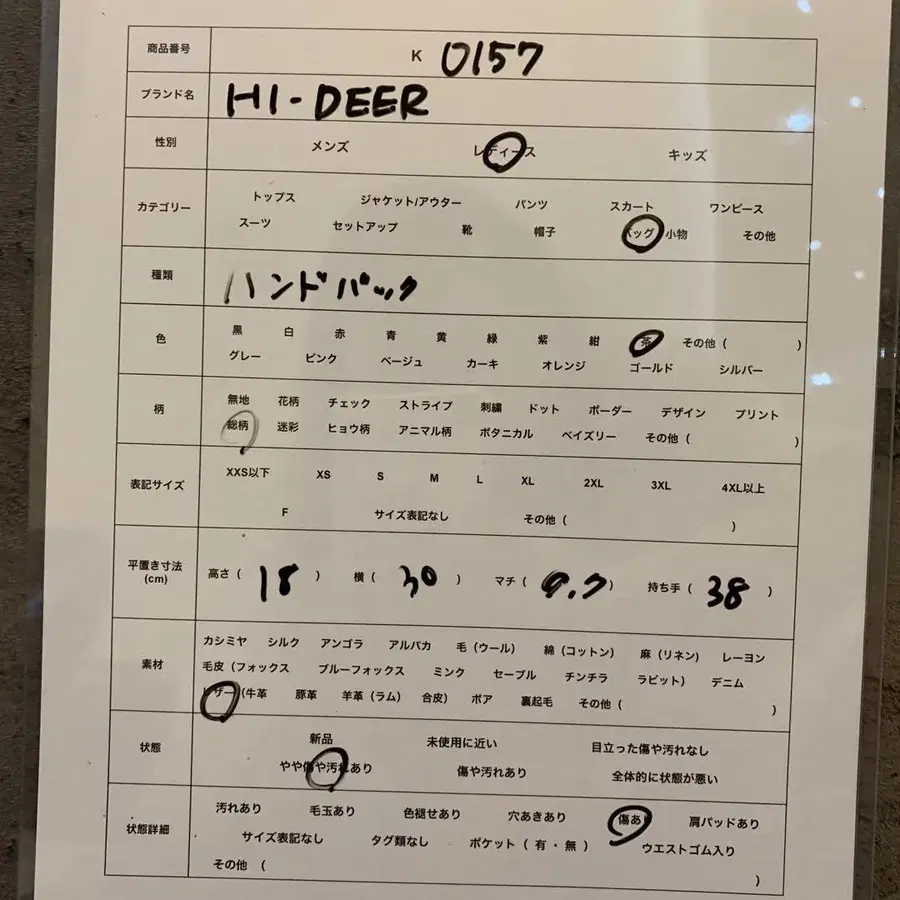 商品番号 K 0157
ブランド名 HI-DEER
性別 メンズ レディース キッズ
カテゴリー トップス ジャケット/アウター パンツ スカート ワンピース
スーツ セットアップ 靴 帽子 バッグ 小物 その他
種類 ハンドバック
色 黒 白 赤 青 黄 緑 紫 紺 茶 その他 ( )
グレー ピンク ベージュ カーキ オレンジ ゴールド シルバー
柄 無地 花柄 チェック ストライプ 刺繍 ドット ボーダー デザイン プリント
総柄 迷彩 ヒョウ柄 アニマル柄 ボタニカル ペイズリー その他 ( )
表記サイズ XXS以下 XS S M L XL 2XL 3XL 4XL以上
F サイズ表記なし その他 ( )
平置き寸法 (cm) 高さ ( 18 ) 横 ( 30 ) マチ ( 9.7 ) 持ち手 ( 38 )
素材 カシミヤ シルク アンゴラ アルパカ 毛 (ウール) 綿 (コットン) 麻 (リネン) レーヨン
毛皮 (フォックス ブルーフォックス ミンク セーブル チンチラ ラビット) デニム
レザー (牛革 豚革 羊革 (ラム) 合皮) ボア 裏起毛 その他 ( )
状態 新品 未使用に近い 目立った傷や汚れなし
やや傷や汚れあり 傷や汚れあり 全体的に状態が悪い
状態詳細 汚れあり 毛玉あり 色褪せあり 穴あきあり 傷あり 肩パッドあり
サイズ表記なし タグ類なし ポケット ( 有・無 ) ウエストゴム入り
その他 ( )